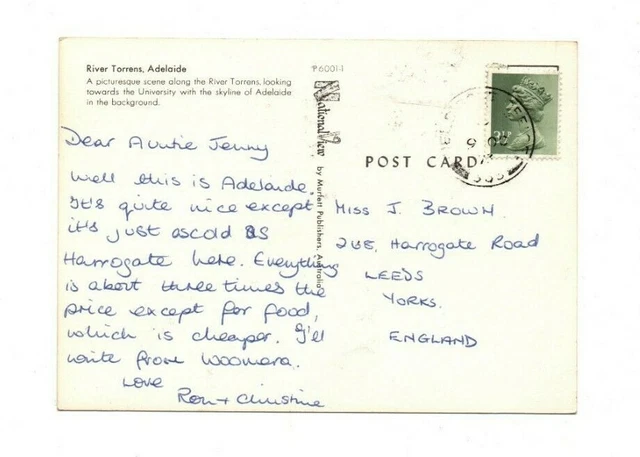 River Torrens, Adelaide
A picturesque scene along the River Torrens, looking
towards the University with the skyline of Adelaide
in the background.
P6001-1
National View by Murfett Publishers, Australia
POST CARD
Dear Auntie Jenny
Well this is Adelaide.
It's quite nice except
it's just as cold as
Harrogate here. Everything
is about three times the
price except for food,
which is cheaper. I'll
write from Woomera.
Love
Ron + Christine
Miss J. BROWN.
Harrogate Road
LEEDS
YORKS.
ENGLAND